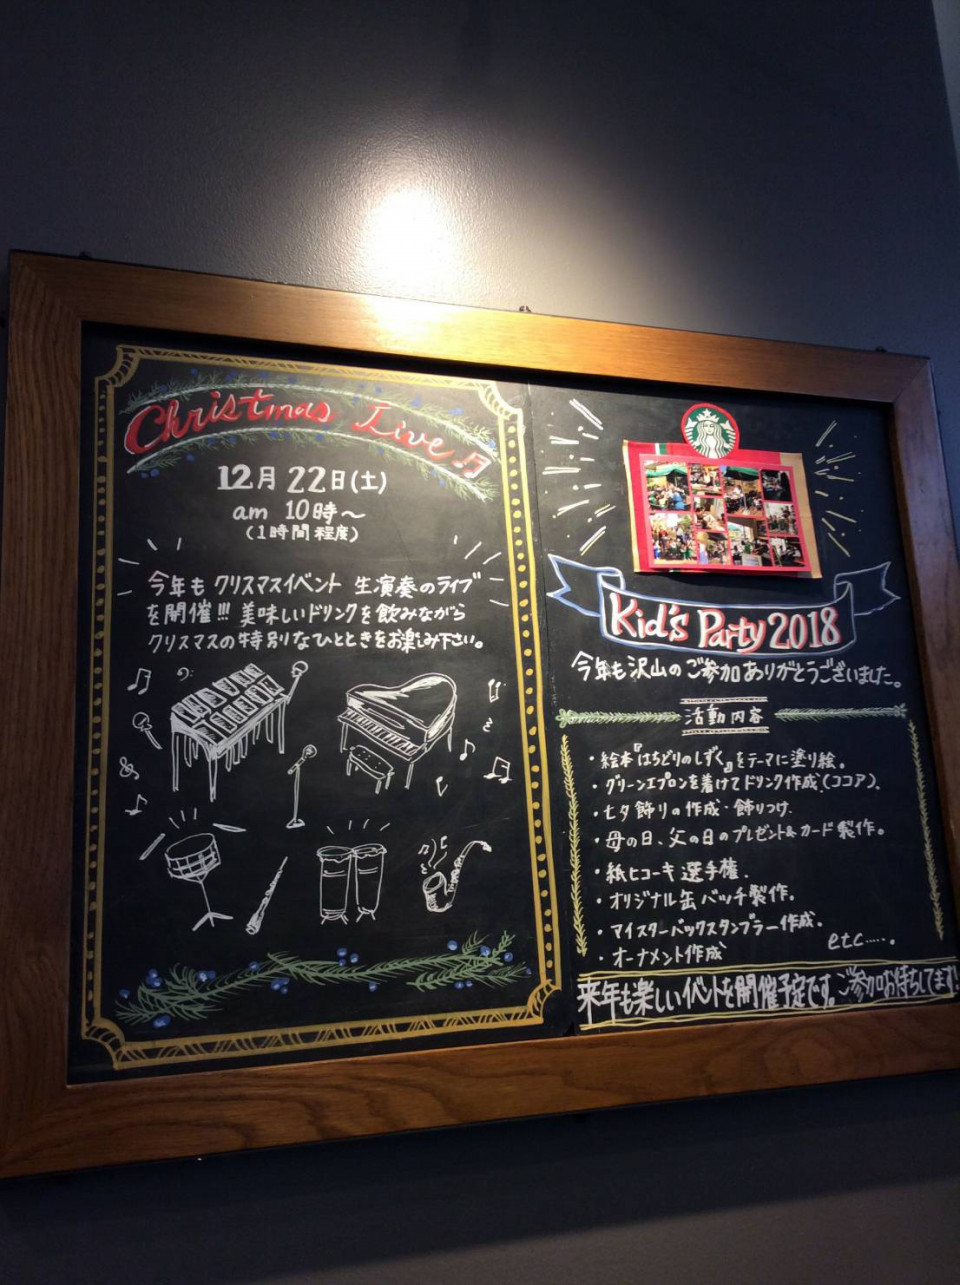 Christmas Live♫
12月22日(土)
am 10時～
(1時間程度)
今年も クリスマスイベント 生演奏のライブ
を開催!!! 美味しいドリンクを飲みながら
クリスマスの特別なひとときをお楽しみ下さい。
Kid's Party 2018
今年も沢山のご参加ありがとうございました。
活動内容
・絵本『はちどりのしずく』をテーマに塗り絵。
・グリーンエプロンを着けてドリンク作成。(ココア)。
・七夕飾りの作成・飾りつけ.
・母の日、父の日のプレゼント&カード製作。
・紙ヒコーキ選手権.
・オリジナル缶バッチ製作.
・マイスターバックスタンブラー作成.
・オーナメント作成
etc.....。
来年も楽しいイベントを開催予定です。ご参加お待ちしてます!